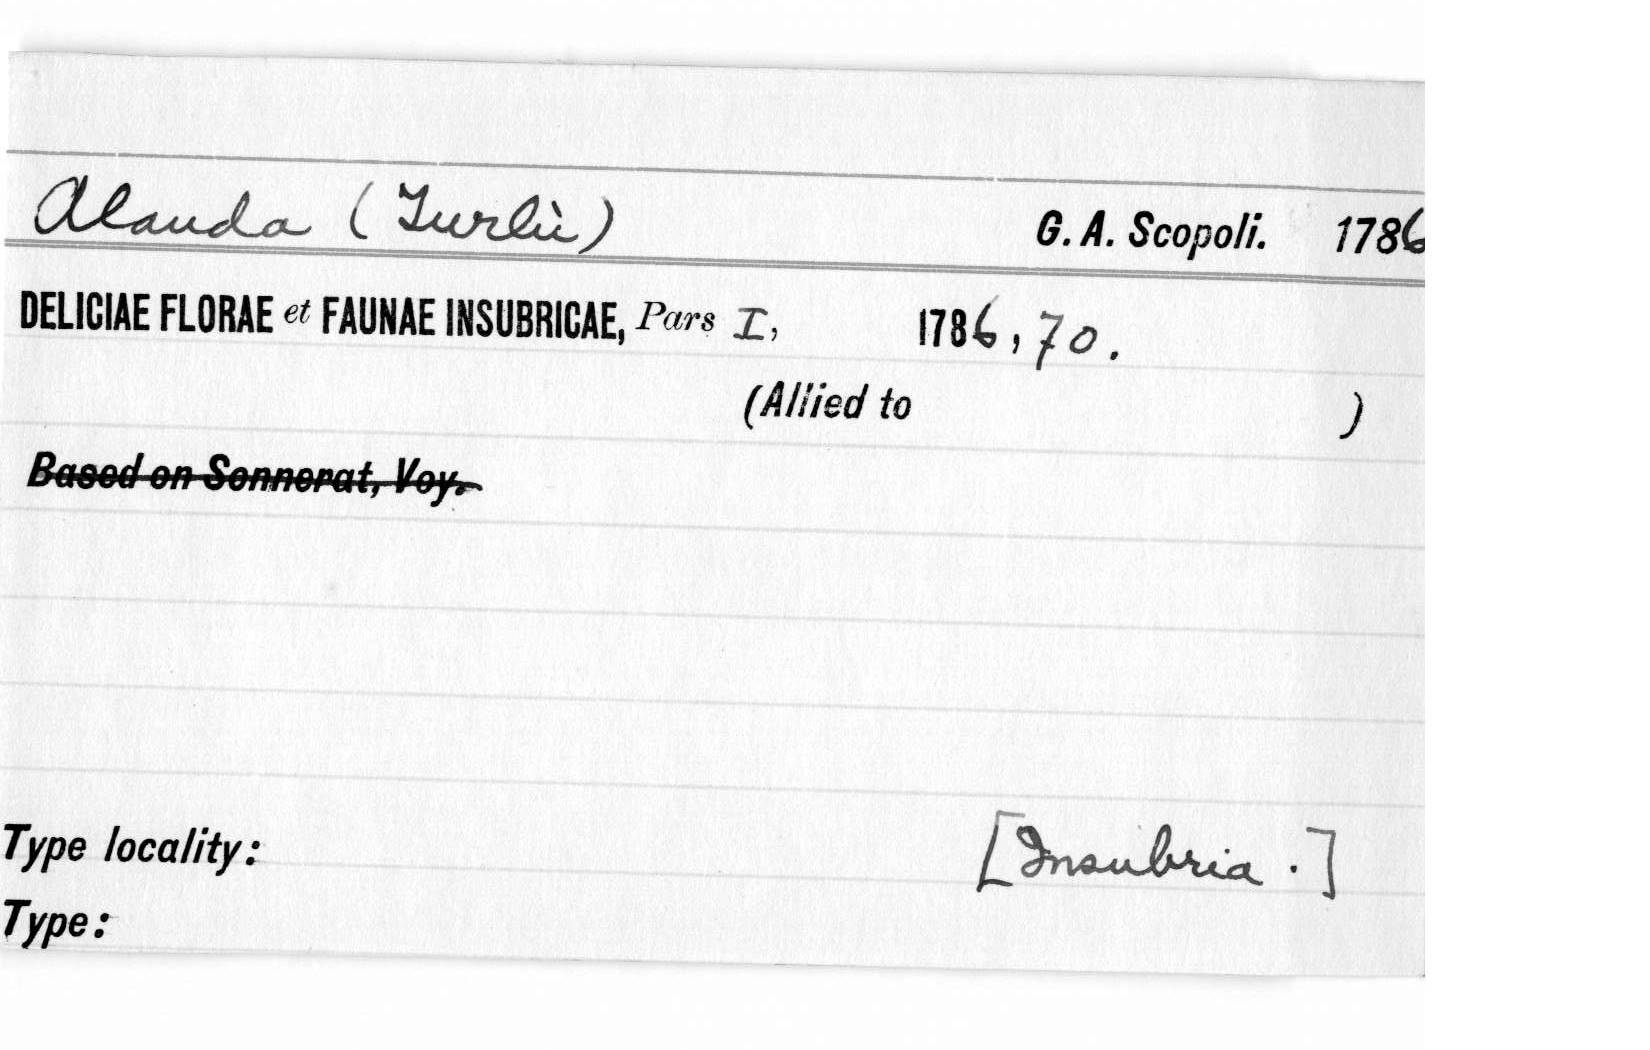 Alauda (Turlù) G. A. Scopoli. 1786
DELICIAE FLORAE et FAUNAE INSUBRICAE, Pars I, 1786, 70.
(Allied to )
Based on Sonnerat, Voy.
Type locality: [Insubria.]
Type: